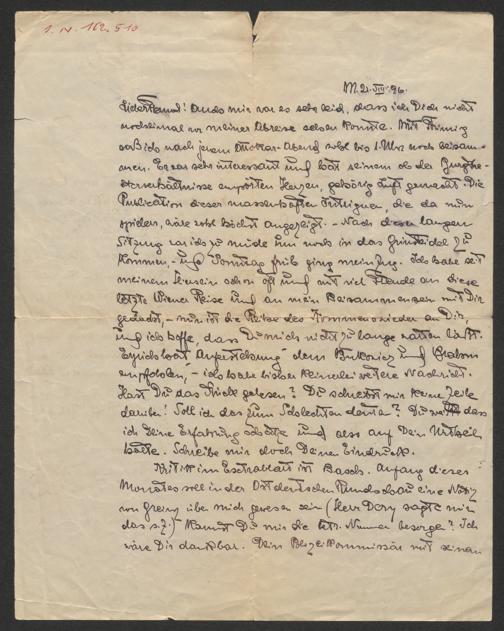 I. N. 162.510
M. 21. VII. 96.
Lieber Freund! Auch mir war es sehr leid, dass ich Dich nicht
nocheinmal vor meiner Abreise sehen konnte. Mit
saß ich nach jenem Ottokar-Abend wohl bis 1 Uhr noch beisam-
men. Er war sehr interessant und hat seinem ob der Burgthe-
aterverhältnisse empörten Herzen, gehörig Luft gemacht. Die
Publication dieser massenhaften Intriguen, die da nun
spielen, wäre wohl höchst angezeigt. – Nach dieser langen
Sitzung war ich zu müde um noch in das Griensteidl zu
kommen, – und Sonntag früh ging mein Zug. Ich habe seit
meinem Hiersein schon oft und mit viel Freude an diese
letzte Wiener Reise und an mein Beisammensein mit Dir
gedacht, – nun ist die Reihe des Kommens wieder an Dir,
und ich hoffe, dass Du mich nicht zu lange warten läßt.
hat „Auferstehung“ dem Bukovics und
empfohlen, – ich habe bisher keinerlei weitere Nachricht.
Hast Du das Stück gelesen? Du schreibst mir keine Zeile
darüber! Soll ich das zum Schlechten deuten? Du weißt dass
ich Deine Erfahrung schätze und also auf Dein Urtheil
halte. Schreibe mir doch Deinen Eindruck.
Kritik im Extrablatt ist Basch. Anfang dieses
Monates soll in der Ostdeutschen Rundschau eine Notiz
von Greinz über mich gewesen sein (Herr Dory sagte mir
das s. Z.) Kannst Du mir die betr. Nummer besorgen? Ich
wäre Dir dankbar. Dein Polizeikommissär mit seinen